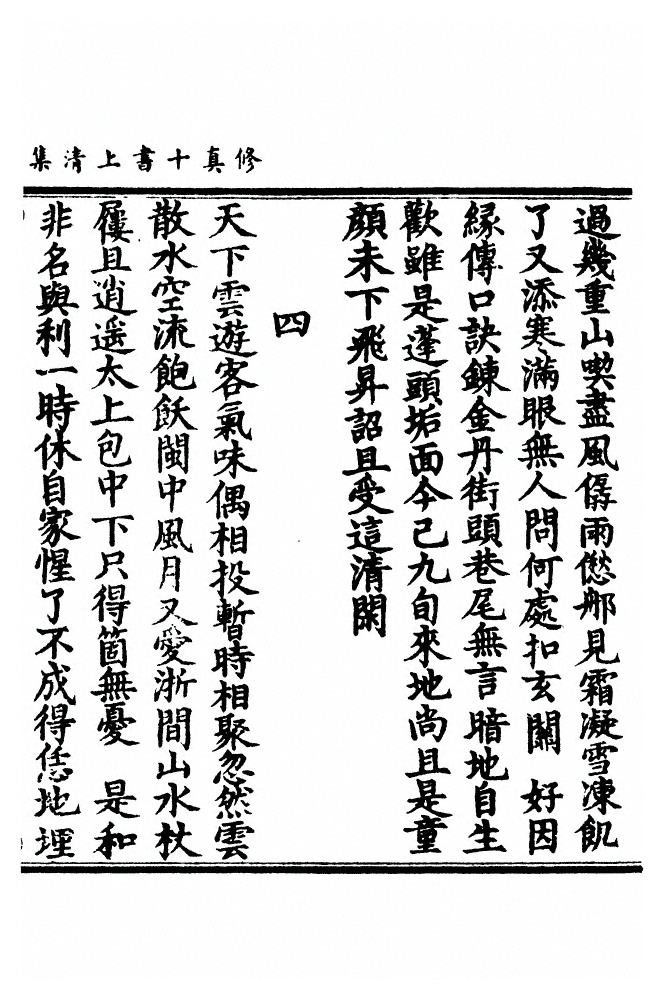 修真十書上清集
過幾重山喫盡風僝雨僽那見霜凝雪凍飢
了又添寒滿眼無人問何處扣玄關　好因
緣傳口訣鍊金丹街頭巷尾無言暗地自生
歡雖是蓬頭垢面今已九旬來地尚且是童
顏未下飛昇詔且受這清閑
四
天下雲遊客氣味偶相投暫時相聚忽然雲
散水空流飽飫閩中風月又愛浙間山水杖
屨且逍遥太上包中下只得箇無憂　是和
非名與利一時休自家惺了不成得恁地埋